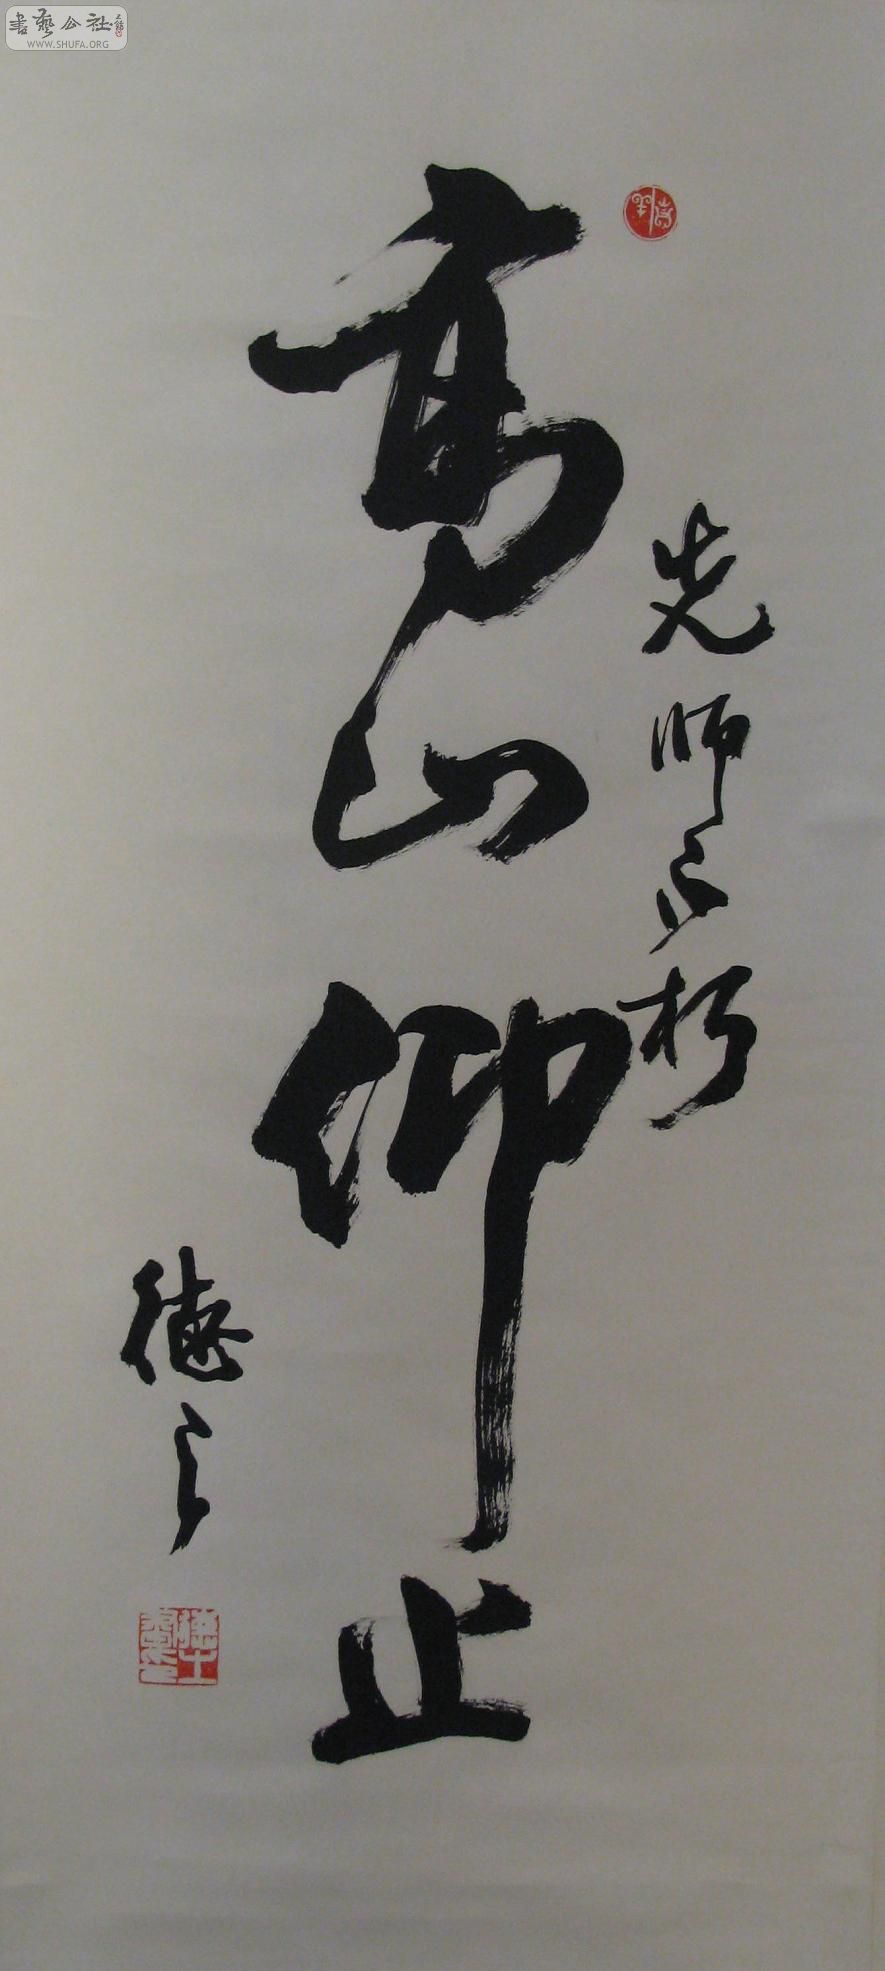 書藝公社
WWW.SHUFA.ORG
先师不朽
高山仰止
德之